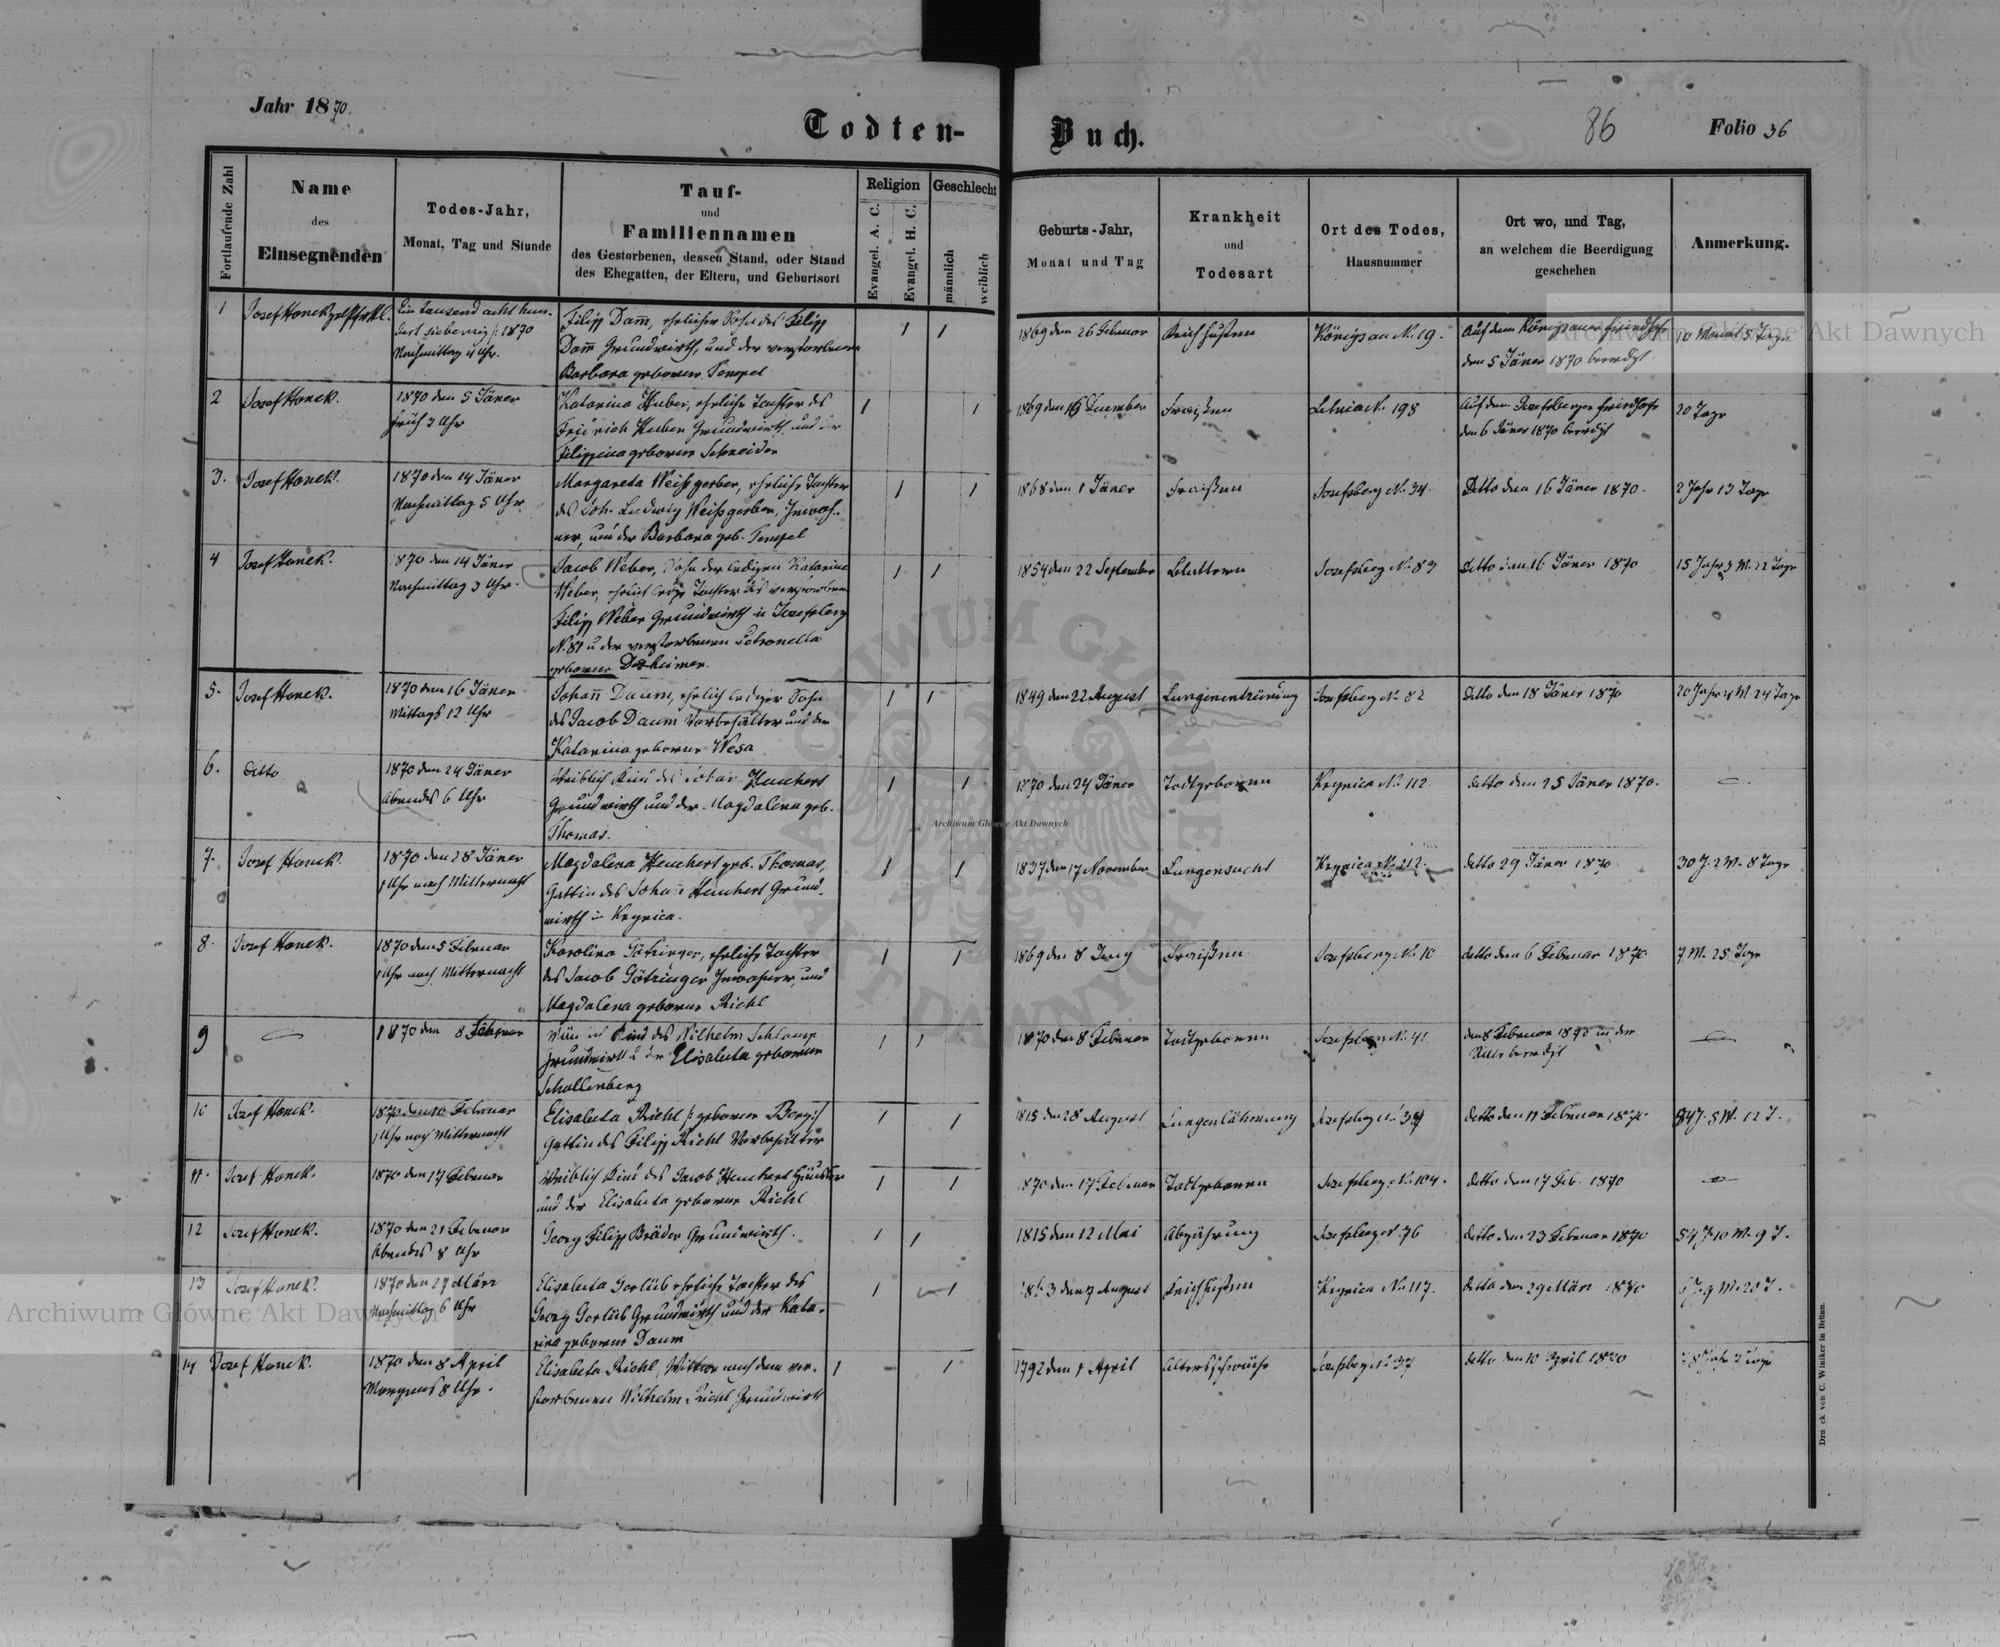 Jahr 1870.
Todten-Buch.
86
Folio 36
Fortlaufende Zahl
Name
des
Einsegnenden
Todes-Jahr,
Monat, Tag und Stunde
Tauf-
und
Familiennamen
des Gestorbenen, dessen Stand, oder Stand
des Ehegatten, der Eltern, und Geburtsort
Religion
Evangel. A. C.
Evangel. H. C.
Geschlecht
männlich
weiblich
Geburts-Jahr,
Monat und Tag
Krankheit
und
Todesart
Ort des Todes,
Hausnummer
Ort wo, und Tag,
an welchem die Beerdigung
geschehen
Anmerkung.
1
Josef Hanek
Ein tausend acht hun-
dert siebenzig 1870
Nachmittag 4 Uhr.
Filipp Dam̄, ehelicher Sohn des Filipp
Dam̄ Grundwirth, und der verstorbenen
Barbara geborene Tempel
1 1
1869 den 26 Februar
Keichhusten
Königsau No. 19.
Auf dem Königsauer Friedhofe
den 5 Jäner 1870 beerdigt
10 Monat 5 Tage
2
Josef Hanek.
1870 den 5 Jäner
früh 3 Uhr
Katarina Huber, eheliche Tochter des
Fridrich Huber Grundwirth und der
Filippina geborene Schneider
1 1
1869 den 16 Dezember
Fraißen
Letnia No. 198
Auf dem Josefsberger Friedhofe
den 6 Jäner 1870 beerdigt
20 Tage
3.
Josef Hanek.
1870 den 14 Jäner
Nachmittag 5 Uhr
Margareta Weißgerber, eheliche Tochter
des Joh. Ludwig Weißgerber, Inwoh-
ner, und der Barbara geb. Tempel
1 1
1868 den 1 Jäner
Fraißen
Josefsberg No. 34.
Ditto den 16 Jäner 1870.
2 Jahr 13 Tage
4
Josef Hanek.
1870 den 14 Jäner
Nachmittag 3 Uhr.
Jacob Weber, Sohn der ledigen Katarina
Weber, ehelich ledige Tochter des verstorbenen
Filipp Weber Grundwirth in Josefsberg
No. 81 u der verstorbenen Petronella
geborene
1 1
1854 den 22 September
Josefsberg No. 83
Ditto den 16 Jäner 1870
15 Jahr 3 M. 22 Tage
5.
Josef Hanek.
1870 den 16 Jäner
Mittags 12 Uhr
Johann Daum, ehelich lediger Sohn
des Jacob Daum Vorbehalter und der
Katarina geborene Wesa
1 1
1849 den 22 August
Lungenentzündung
Josefsberg No. 82
Ditto den 18 Jäner 1870
20 Jahr 4 M. 24 Tage
6.
Ditto
1870 den 24 Jäner
Abends 6 Uhr
Weiblich Kind des Johan Heuchert
Grundwirth und der Magdalena geb.
Thomas.
1 1
1870 den 24 Jäner
Todtgeboren
Krynica No. 112.
detto den 25 Jäner 1870.
7.
Josef Hanek.
1870 den 28 Jäner
1 Uhr nach Mitternacht
Magdalena Heuchert geb. Thomas,
Gattin des Johan Heuchert Grund-
wirth in Krynica.
1 1
1837 den 17 November
Lungensucht
Krynica No. 112.
detto 29 Jäner 1870
30 J. 2 M. 8 Tage
8.
Josef Hanek.
1870 den 5 Februar
1 Uhr nach Mitternacht
Karolina Götzinger, eheliche Tochter
des Jacob Götzinger Inwohner, und
Magdalena geborene Riehl
1 1
1869 den 8 Juny
Fraißen
Josefsberg No. 10
detto den 6 Februar 1870
7 M. 25 Tage
9
1870 den 8 Februar
Kind des Wilhelm Schlamp
Grundwirth u der Elisabeta geborene
Schallenberg
1 1
1870 den 8 Februar
Todtgeboren
Josefsberg No. 41
den 8 Februar 1870 in der
Stille beerdigt
10
Josef Hanek.
1870 den 10 Februar
1 Uhr nach Mitternacht
Elisabeta Riehl geborene Berg
Gattin des Filipp Riehl Vorbehalter
1 1
1815 den 28 August
Lungenlähmung
Josefsberg No. 34
detto den 11 Februar 1870
54 J. 5 M. 12 T.
11.
Josef Hanek.
1870 den 17 Februar
Weiblich Kind des Jacob Heuchert Häusler
und der Elisabeta geborene Riehl
1 1
1870 den 17 Februar
Todtgeboren
Josefsberg No. 104.
detto den 17 Feb. 1870
12
Josef Hanek.
1870 den 21 Februar
Abends 8 Uhr
Georg Filipp Bräder Grundwirth.
1 1
1815 den 12 Mai
Abzährung
Josefsberg No. 76
detto den 23 Februar 1870
54 J. 10 M. 9 T.
13
Josef Hanek.
1870 den 27 März
Nachmittag 6 Uhr
Elisabeta Gorlüb eheliche Tochter des
Georg Gorlüb Grundwirth und der Kata-
rina geborene Daum
1 1
1863 den 7 August
Keichhusten
Krynica No. 117.
detto den 29 März 1870
6 J. 9 M. 20 T.
14
Josef Hanek.
1870 den 8 April
Morgens 8 Uhr.
Elisabeta Riehl, Witwe nach dem ver-
storbenen Wilhelm Riehl Grundwirth
1 1
1792 den 1 April
Altersschwäche
Josefsberg No. 37
detto den 10 April 1870
78 Jahr 7 Tage
Druck von C. Winiker in Brünn.
Archiwum Główne Akt Dawnych
Archiwum Główne Akt Dawnych
Archiwum Główne Akt Dawnych
ARCHIWUM GŁÓWNE AKT DAWNYCH